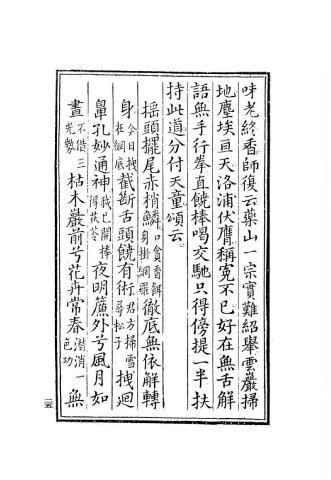 味老終香師復云藥山一宗實難紹舉雲巖掃
地塵埃亘天洛浦伏膺稱寃不已好在無舌解
語無手行拳直饒棒喝交馳只得傍提一半扶
持此道分付天童頌云
搖頭擺尾赤梢鱗口貪香餌身掛網羅徹底無依解轉
身今日拽在網底截斷舌頭饒有術君方掃雪尋松子拽迴
鼻孔妙通神我已開棒得茯苓夜明簾外兮風月如
晝不借三光勢枯木巖前兮花卉常春潛消一色功無
二五